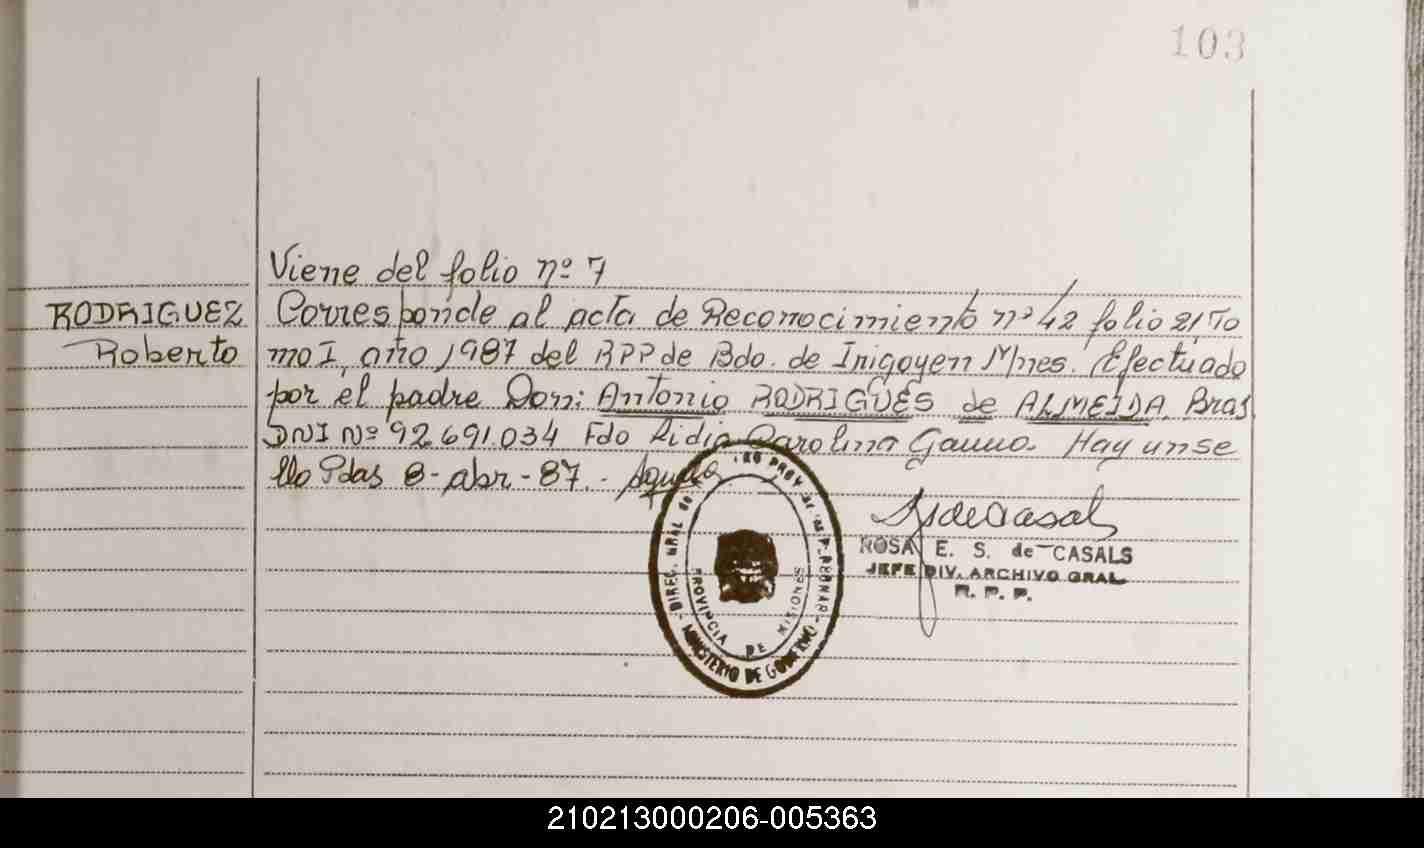 103
Viene del folio nº 7
RODRIGUEZ
Roberto
Corresponde al acta de Reconocimiento nº 42 folio 21 To
mo I, año 1987 del RPP de Bdo. de Irigoyen Mnes. Efectuado
por el padre Don: Antonio RODRIGUES de ALMEIDA. Bras
DNI Nº 92.691.034 Fdo Lidia Carolina Hay un se
llo Pdas 8-abr-87.-
ROSA E. S. de CASALS
JEFE DIV. ARCHIVO GRAL
R. P. P.
DIREC. GRAL de PROV
PROVINCIA DE MISIONES
MINISTERIO DE GOBIERNO
210213000206-005363